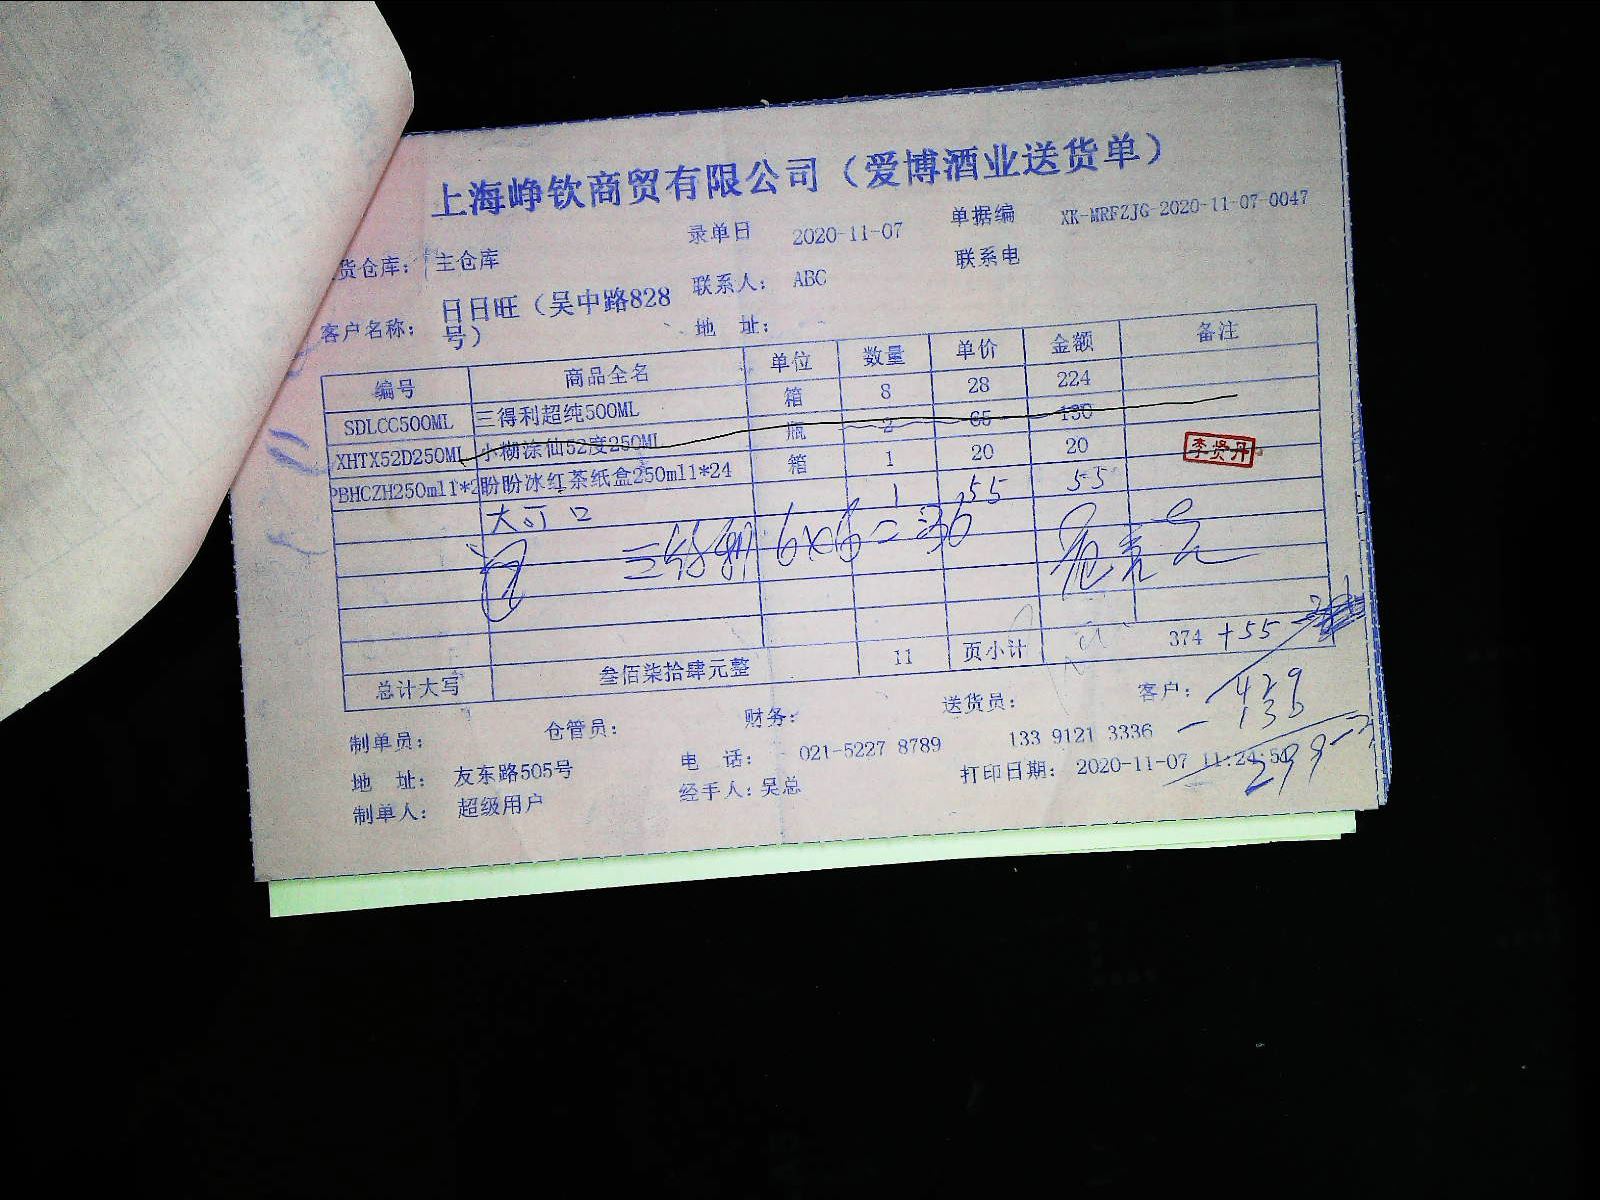 上海峥钦商贸有限公司（爱博酒业送货单）
录单日 2020-11-07 单据编 XK-MRFZJG-2020-11-07-0047
货仓库： 主仓库 联系人： ABC 联系电
客户名称： 日日旺（吴中路828号） 地 址：
编号 商品全名 单位 数量 单价 金额 备注
SDLCC500ML 三得利超纯500ML 箱 8 28 224
XHTX52D250ML 小糊涂仙52度250ML 瓶 2 65 130
PBHCZH250ml1*2 盼盼冰红茶纸盒250ml1*24 箱 1 20 20
李贤丹
大可口 1 55 55
6×6=36
总计大写 叁佰柒拾肆元整 11 页小计 374 +55
429
- 130
299
制单员： 仓管员： 财务： 送货员： 客户：
地 址： 友东路505号 电 话： 021-5227 8789 133 9121 3336
制单人： 超级用户 经手人：吴总 打印日期： 2020-11-07 11:24:54